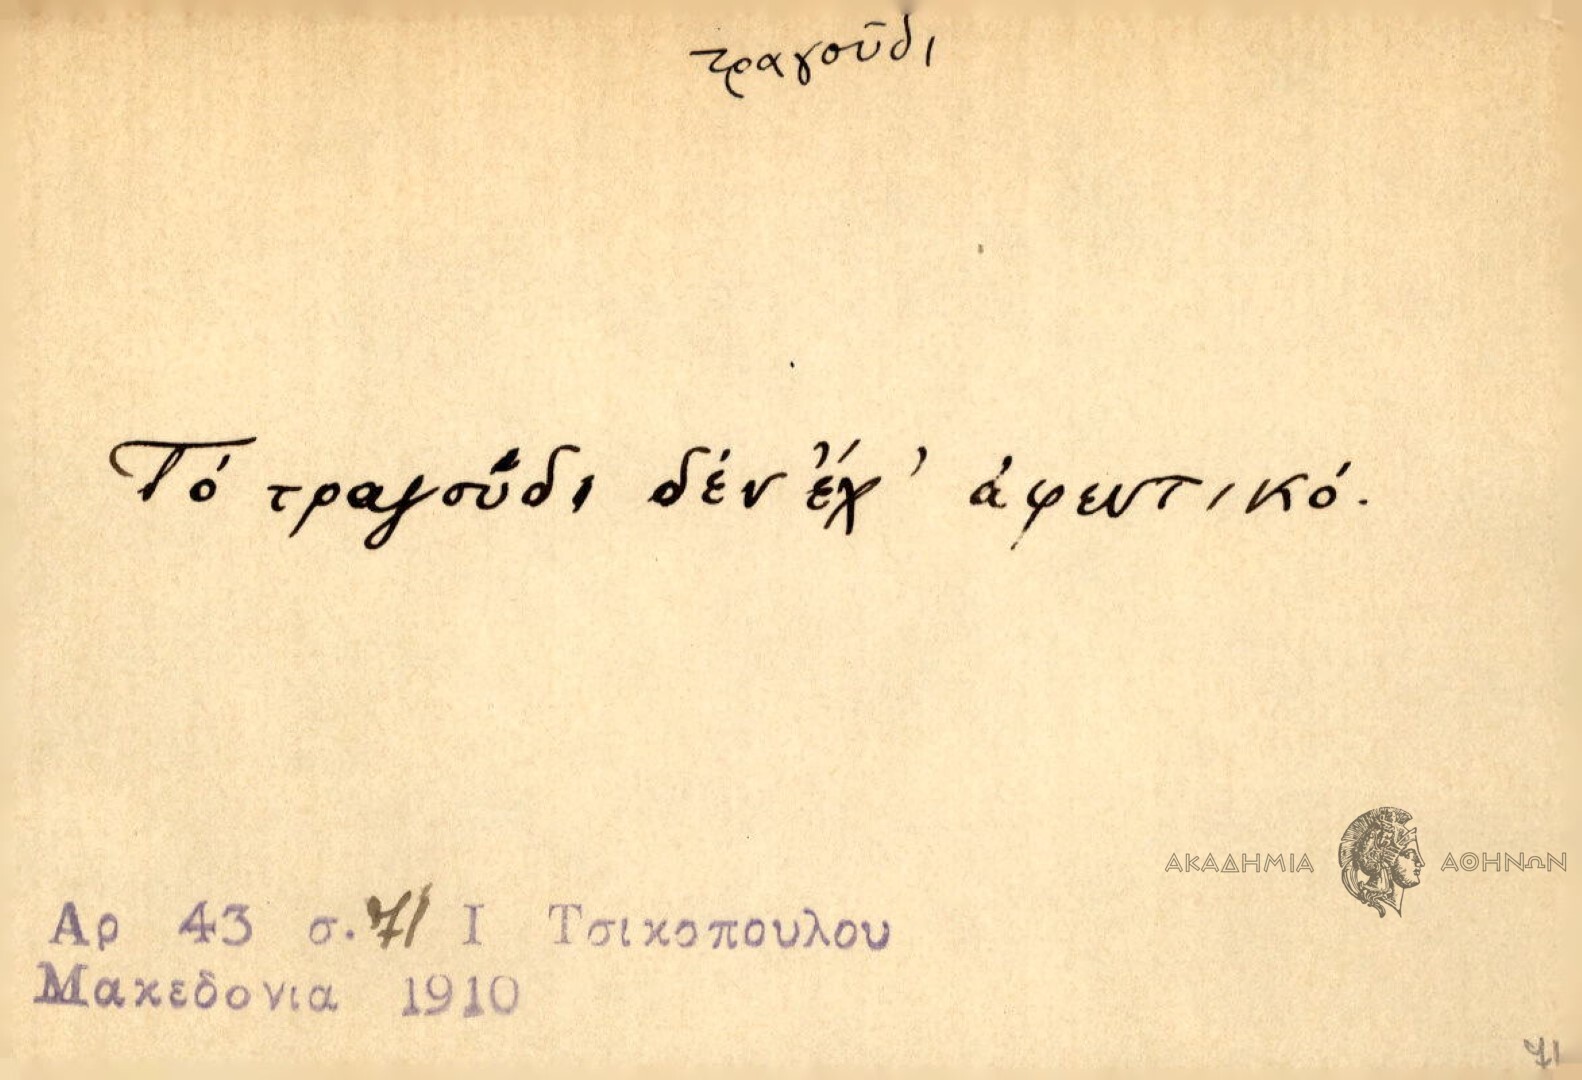 τραγοῦδι
Τό τραγοῦδι δέν ἔχ' ἀφεντικό.
ΑΚΑΔΗΜΙΑ ΑΘΗΝΩΝ
Αρ 43 σ. 71 Ι Τσικοπουλου
Μακεδονια 1910
71